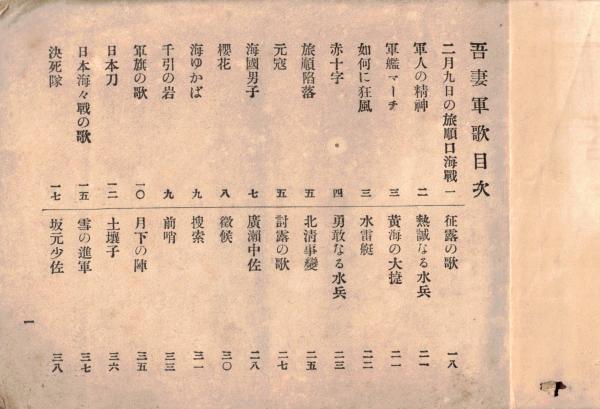 吾妻軍歌目次
二月九日の旅順口海戰 一
軍人の精神 二
軍艦マーチ 三
如何に狂風 三
赤十字 四
旅順陷落 五
元寇 五
海國男子 七
櫻花 八
海ゆかば 九
千引の岩 九
軍旗の歌 一〇
日本刀 一二
日本海々戰の歌 一五
決死隊 一七
征露の歌 一八
熱誠なる水兵 二一
黃海の大捷 二一
水雷艇 二二
勇敢なる水兵 二三
北淸事變 二五
討露の歌 二七
廣瀨中佐 二八
徵候 三〇
搜索 三一
前哨 三三
月下の陣 三五
土壤子 三六
雪の進軍 三七
坂元少佐 三八
一